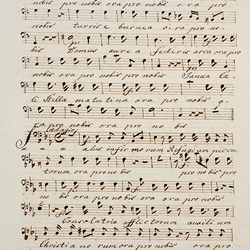 nobis ora pro nobis ora pro
nobis turris e burnea ora pro no
bis Domus aurea federis ora ora pro
nobis ora pro nobis ora pro nobis Janua Cæ
li Stella matutina ora pro nobis o
ra pro nobis ora pro no bis
Adagio
Salus infirmorum Refugium pecca
torum ora pro nobis pro nobis pro
nobis ora pro nobis ora pro nobis ora
Consolatrix afflictorum auxilium
Christianorum ora pro nobis ora pro